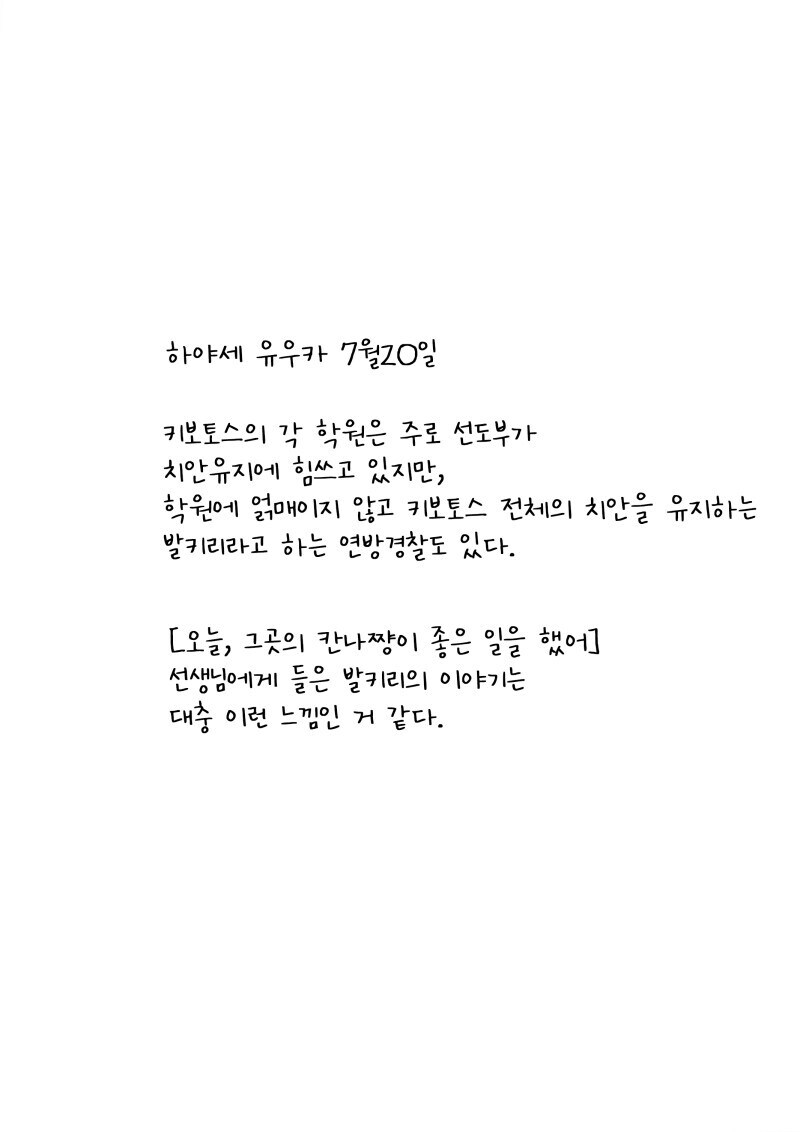 하야세 유우카 7월20일
키보토스의 각 학원은 주로 선도부가
치안유지에 힘쓰고 있지만,
학원에 얽매이지 않고 키보토스 전체의 치안을 유지하는
발키리라고 하는 연방경찰도 있다.
[오늘, 그곳의 칸나쨩이 좋은 일을 했어]
선생님에게 들은 발키리의 이야기는
대충 이런 느낌인 거 같다.